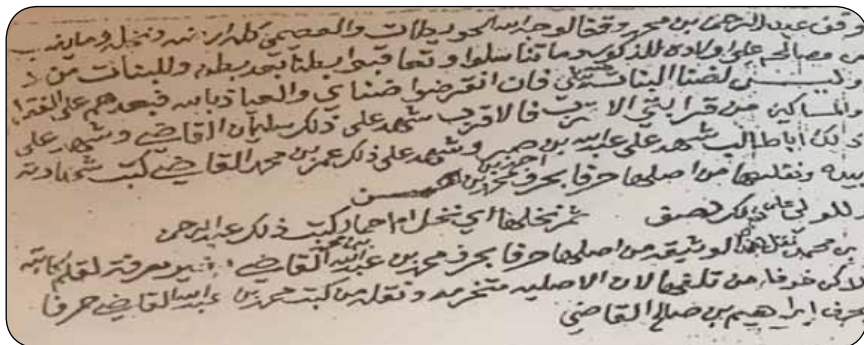 وقف عبدالرحمن بن محمد وقفا لوجه الله الحويطات والعصمي كله ارضه ونخله وما ينوب
من مصالحه على اولاده الذكور وما تناسلوا وتعاقبوا بطنا بعد بطن وللبنات من
وليس لضنا البنات شي فان انقرضوا ضناي والعياذ بالله فبعدهم على الفقرا
والمساكين من قرابتي الاقرب فالاقرب شهد على ذلك سليمان القاضي وشهد على
ذلك اباطالب شهد على عبدالله بن وشهد على ذلك عمر بن محمد القاضي كتب شهادته
بيده ونقلها من اصلها حرفا بحرف محمد بن احمد بن حسن
للولي على ذلك نصف ثمر نخلها اي نخل ام احماد كتب ذلك عبدالرحمن
بن محمد نقل هذا الوثيقه من اصلها حرفا بحرف محمد بن عبدالله القاضي معرفة لقلم كاتبه
لاكن خوفا من تلفها لان الاصليه متخرمه ونقله من كتب محمد بن عبدالله القاضي حرفا
بحرف ابراهيم بن صالح القاضي